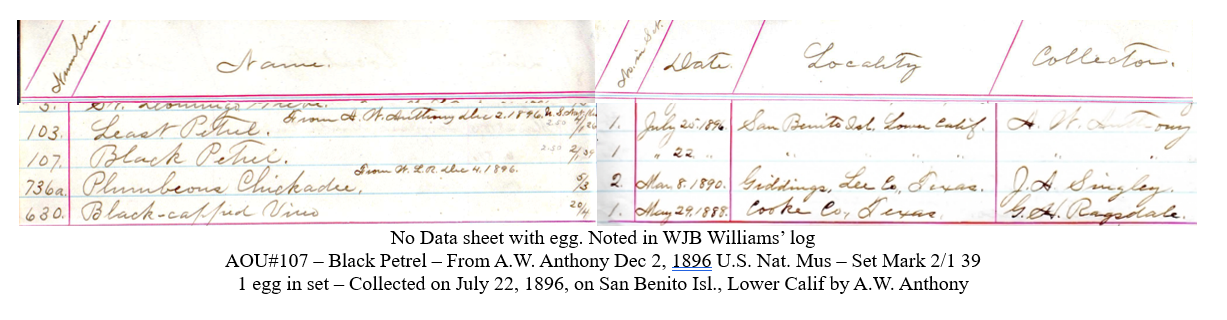 Number. Name. No. in Set. Date. Locality Collector.
From A. W. Anthony Dec 2. 1896.
103. Least Petrel. 1. July 25. 1896. San Benito Isl. Lower Calif. A. W. Anthony
107. Black Petrel. 2.50 2/1 39 1 " 22 " " " " " " "
From W. L. R. Dec 4. 1896.
736a. Plumbeous Chickadee. 5/3 2. Mar. 8. 1890. Giddings, Lee Co, Texas. J. A. Singley.
630. Black-capped Vireo 20/4 1. May 29. 1888. Cooke Co, Texas. G. H. Ragsdale.
No Data sheet with egg. Noted in WJB Williams’ log
AOU#107 – Black Petrel – From A.W. Anthony Dec 2, 1896 U.S. Nat. Mus – Set Mark 2/1 39
1 egg in set – Collected on July 22, 1896, on San Benito Isl., Lower Calif by A.W. Anthony